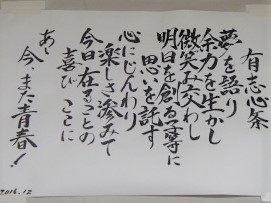 有志心条
夢を語り
余力を生かし
微笑み交わし
明日を創る事に
思いを託す
心にじんわり
楽しさ滲みて
今日在ることの
喜び ここに
あゝ
今、また青春！
2016.12